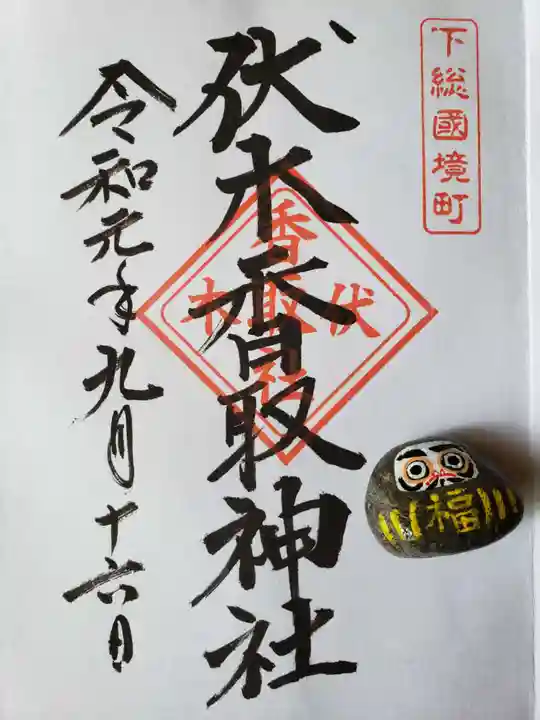 下総國境町
伏木香取神社
伏
香取社
木
令和元年九月十六日
福